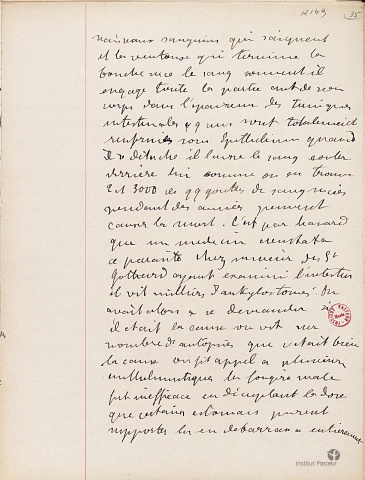 12143
35
vaisseaux sanguins qui saignent
et les ventouse qui termine la
bouche suce le sang souvent il
engage toute la partie ant de son
corps dans l'épaisseur des tuniques
intestinales qq uns sont totalement
renfermés sous Epithelium quand
il se détache il laisse le sang couler
derrière lui comme on en trouve
2 et 3000 des qq gouttes de sang
pendant des années peuvent
causer la mort. C'est par hasard
que un médecin constata
ce parasite chez mineur des St
Gothard ayant examiné l'intestin
il vit milliers d'ankylostomes. On
avait alors a se demander si
il était la cause on vit sur
nombre de autopsies que c'était bien
la cause on fit appel a plusieurs
la fougère male
fut inefficace en décuplant la dose
que certains estomacs purent
supporter on debarrassa entierement
INSTITUT PASTEUR
Institut Pasteur